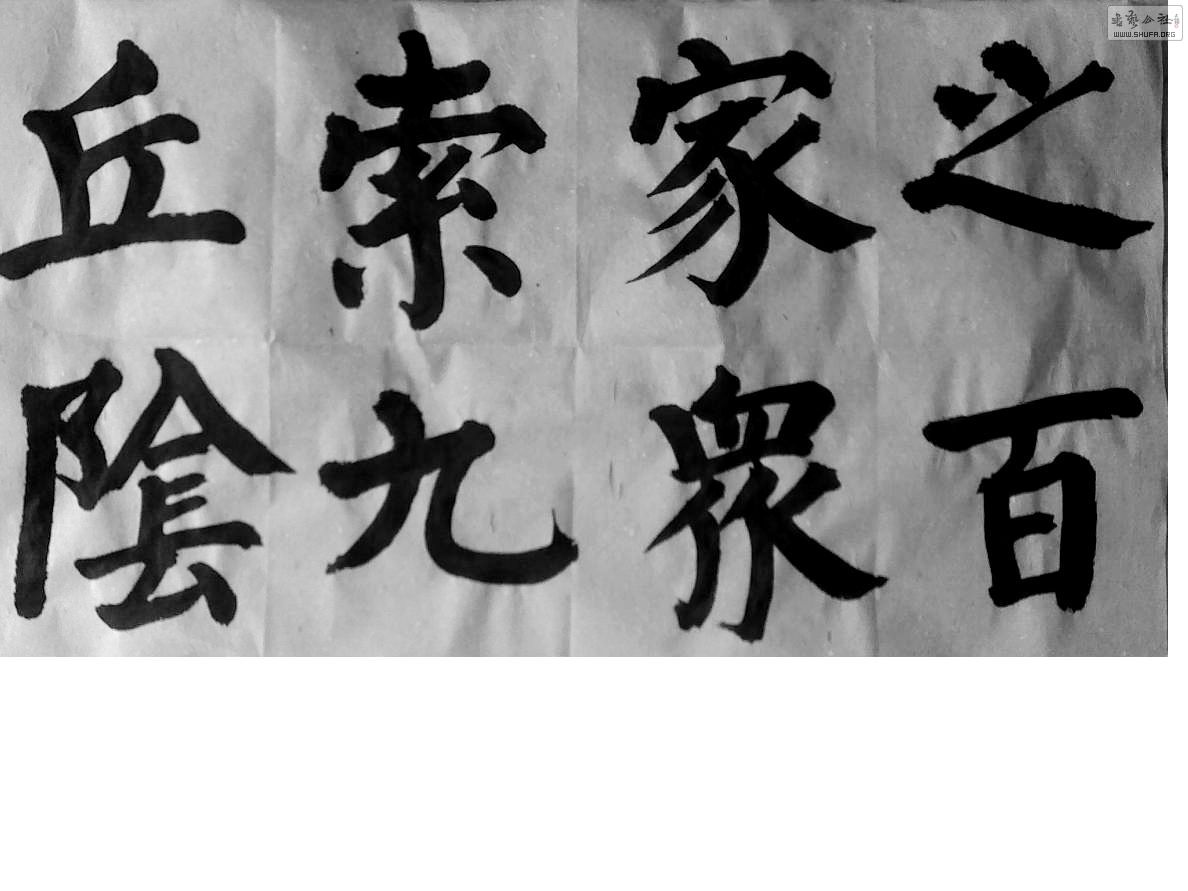 之百
家衆
索九
丘陰
書藝公社
WWW.SHUFA.ORG